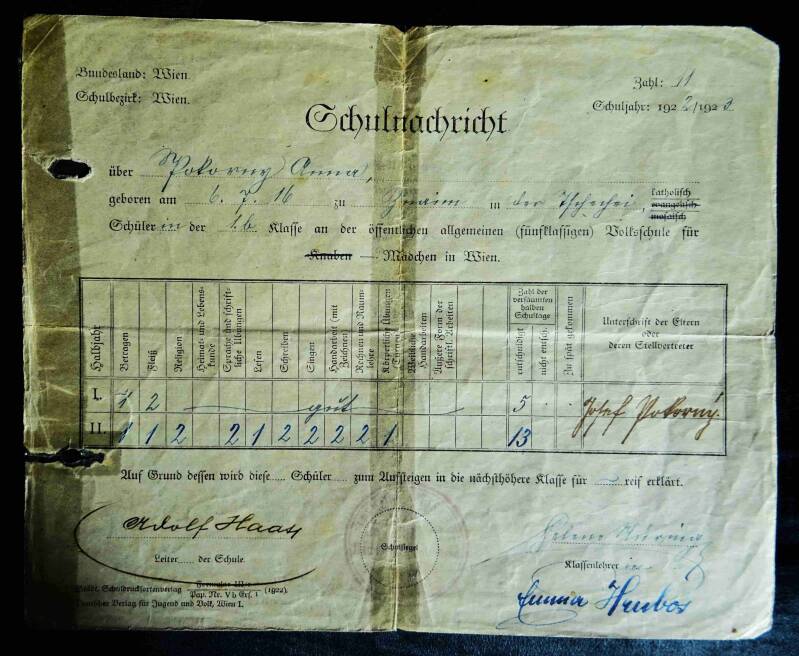 Bundesland: Wien.
Zahl: 11
Schulbezirk: Wien.
Schuljahr: 1922/1923
Schulnachricht
über Pokorny Anna,
geboren am 6. 7. 16 zu Znaim in der Tschechei, katholisch
evangelisch
mosaisch
Schülerin der 1b Klasse an der öffentlichen allgemeinen (fünfklassigen) Volksschule für
Knaben — Mädchen in Wien.
Halbjahr
Betragen
Fleiß
Religion
Heimat- und Lebens-
kunde
Sprache und schrift-
liche Übungen
Lesen
Schreiben
Singen
Handarbeit (mit
Zeichnen)
Rechnen und Raum-
lehre
Körperliche Übungen
(Turnen)
Weibliche
Handarbeiten
Äußere Form der
schriftl. Arbeiten
Zahl der
versäumten
halben
Schultage
entschuldigt
nicht entsch.
Zu spät gekommen
Unterschrift der Eltern
oder
deren Stellvertreter
I. 1 2 gut 5 Josef Pokorny.
II. 1 1 2 2 1 2 2 2 2 1 13
Auf Grund dessen wird diese Schüler zum Aufsteigen in die nächsthöhere Klasse für reif erklärt.
Adolf Haas
Helene
Leiter der Schule.
Schulsiegel
Klassenlehrerin
Emma Hrubos
Städt. Schuldrucksortenverlag
Pap. Nr. Vb Ers. 1 (1922).
Deutscher Verlag für Jugend und Volk, Wien I.